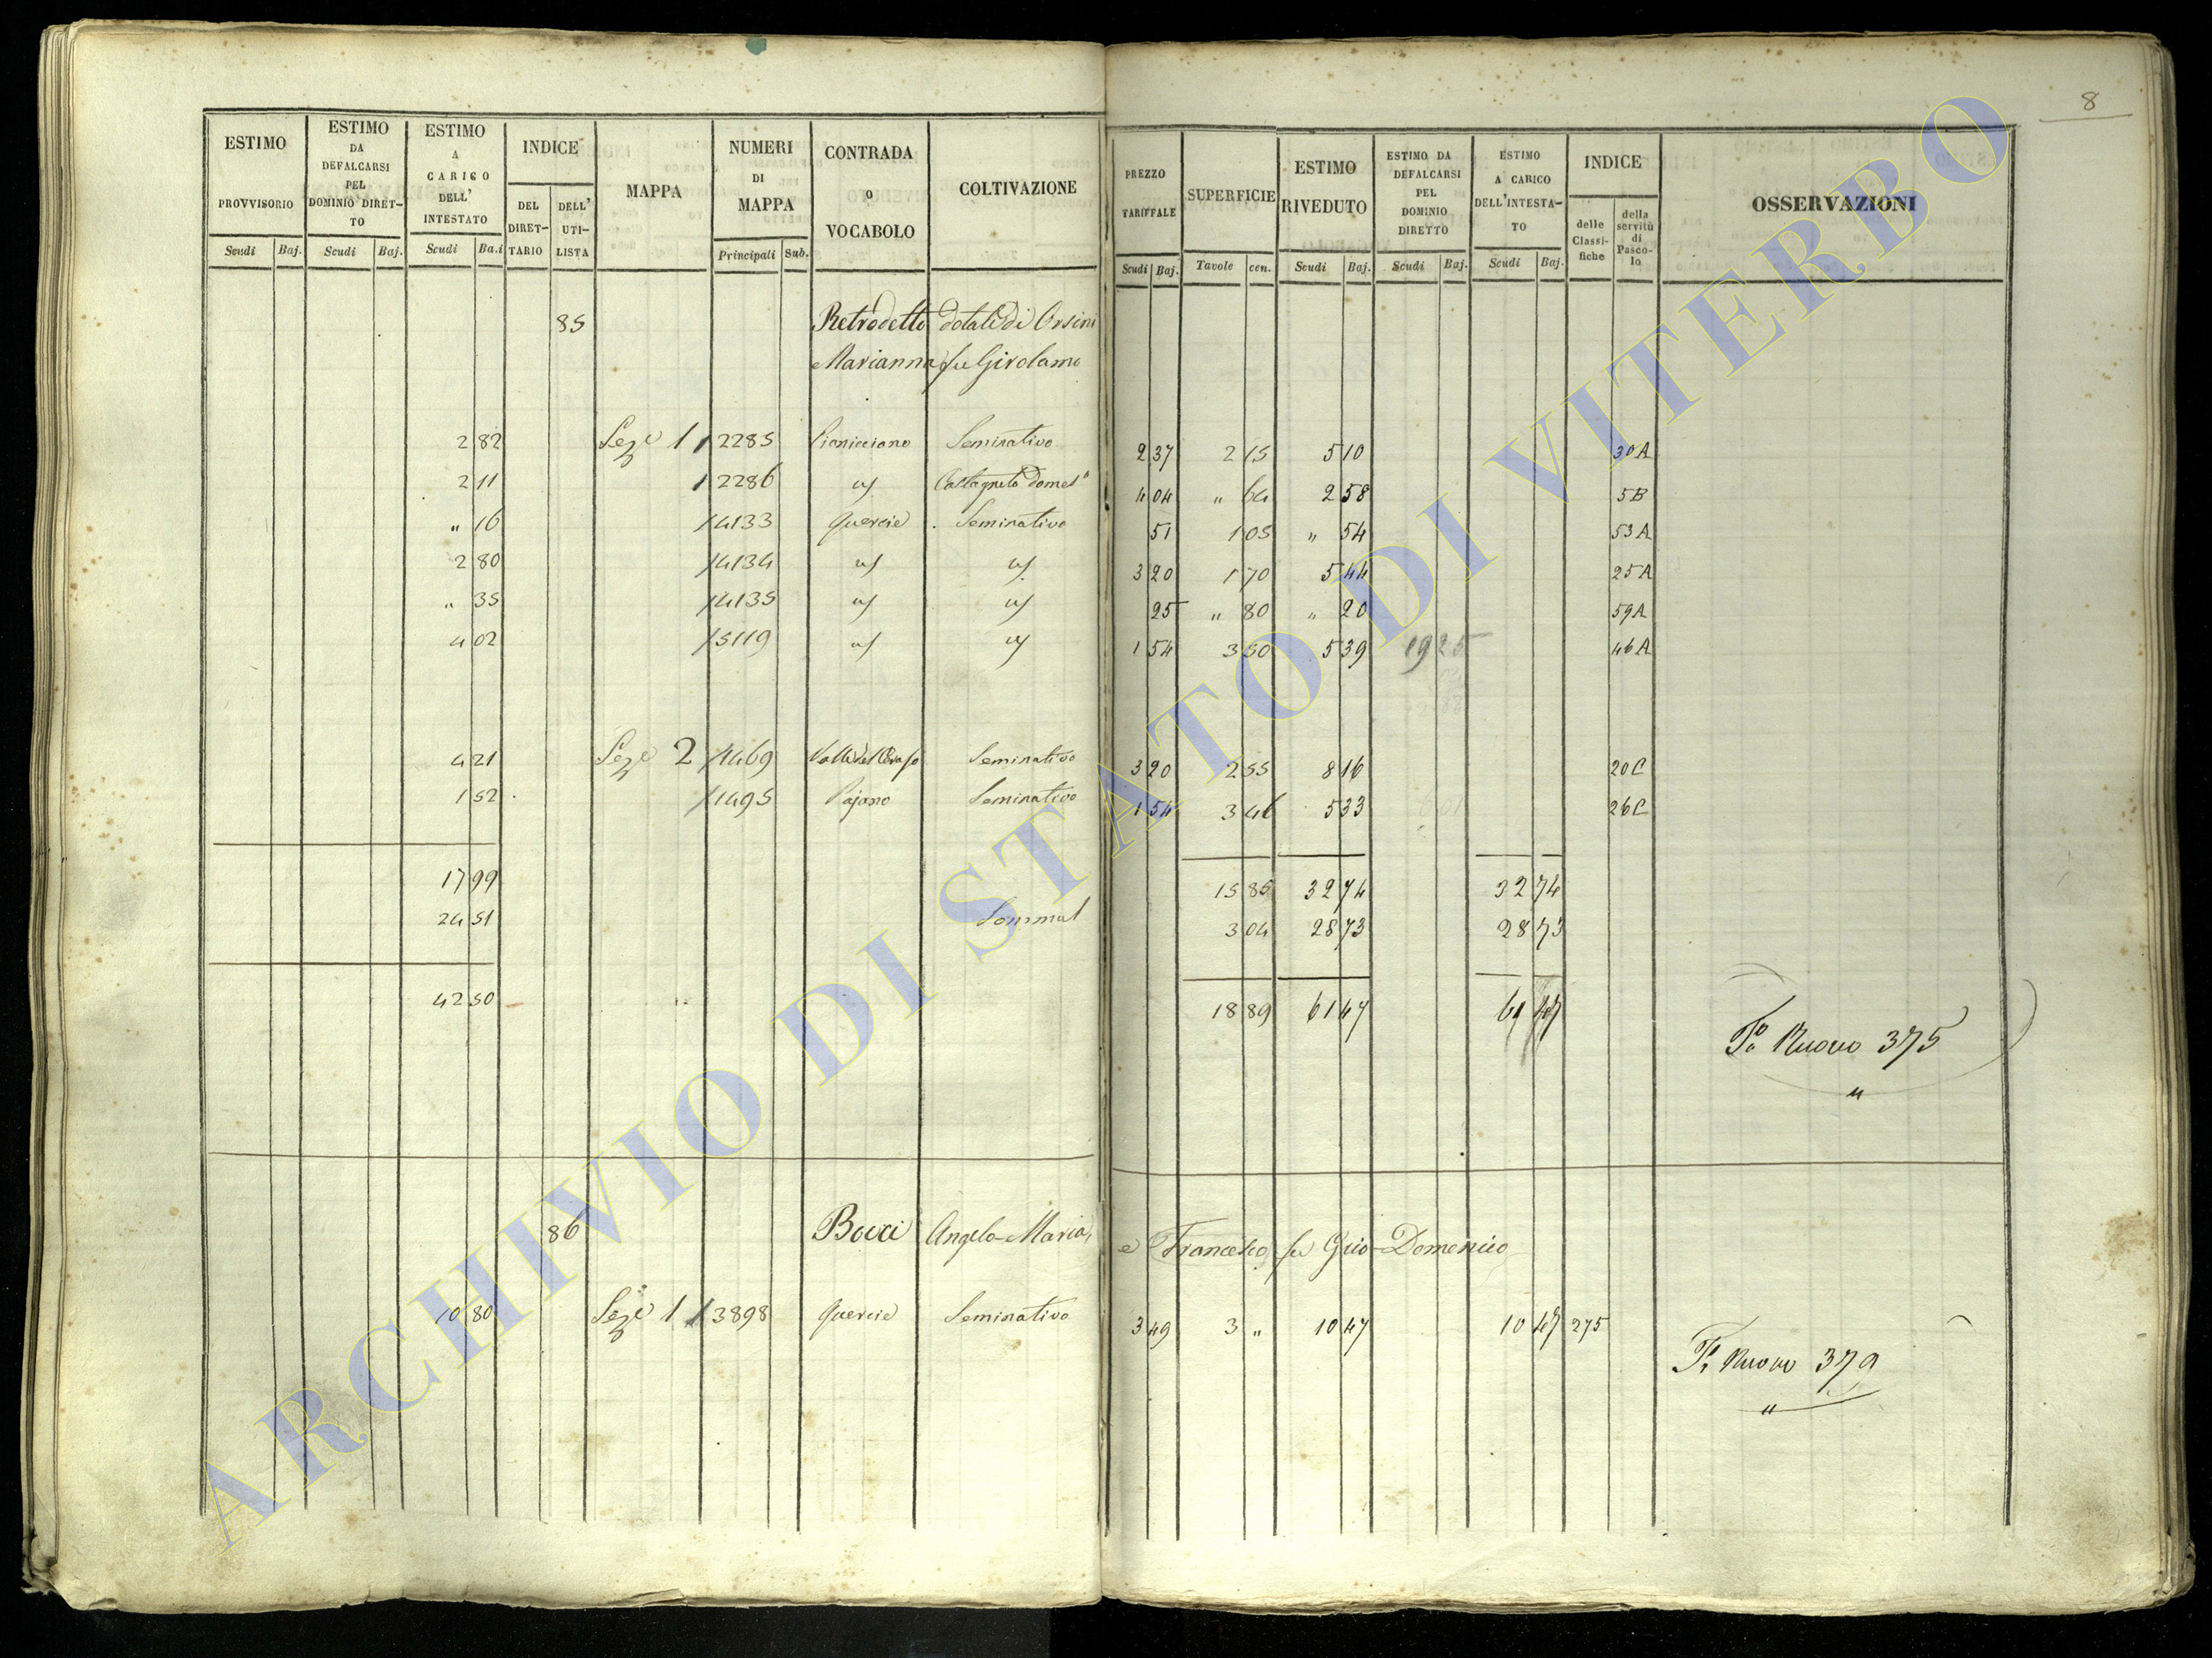 8
ESTIMO PROVVISORIO | ESTIMO DA DEFALCARSI PEL DOMINIO DIRETTO | ESTIMO A CARICO DELL' INTESTATO | INDICE | MAPPA | NUMERI DI MAPPA | CONTRADA O VOCABOLO | COLTIVAZIONE | PREZZO TARIFFALE | SUPERFICIE | ESTIMO RIVEDUTO | ESTIMO DA DEFALCARSI PEL DOMINIO DIRETTO | ESTIMO A CARICO DELL'INTESTATO | INDICE | OSSERVAZIONI
DEL DIRETTARIO | DELL' UTILISTA | delle Classifiche | della servitù di Pascolo
Scudi | Baj. | Scudi | Baj. | Scudi | Ba.i | Principali | Sub. | Scudi | Baj. | Tavole | cen. | Scudi | Baj. | Scudi | Baj. | Scudi | Baj.
85 Retrodetto dotali di Orsini
Marianna fu Girolamo
2 82 Seze 1 1 2285 Seminativo 2 37 2 15 5 10 30A
2 11 1 2286 Castagneto Domes° 4 04 " 64 2 58 5B
" 16 / 4133 Quercie Seminativo 51 1 05 " 54 53A
2 80 / 4134 3 20 1 70 5 44 25A
" 35 / 4135 25 " 80 " 20 59A
4 02 / 5119 1 54 3 50 5 39 19 25 46A
4 21 Seze 2 / 1469 Seminativo 3 20 2 55 8 16 20C
1 52 / 1495 Pajano Seminativo 1 54 3 46 5 33 26C
17 99 15 85 32 74 32 74
24 51 Sommat 3 04 28 73 28 73
42 50 18 89 61 47 61 47
T° Nuovo 375
"
86 Bocci Angelo-Maria, e Francesco fu Gio-Domenico
10 80 Seze 1 1 3898 Quercie Seminativo 3 49 3 " 10 47 10 47 275
T. Nuovo 379
"
ARCHIVIO DI STATO DI VITERBO